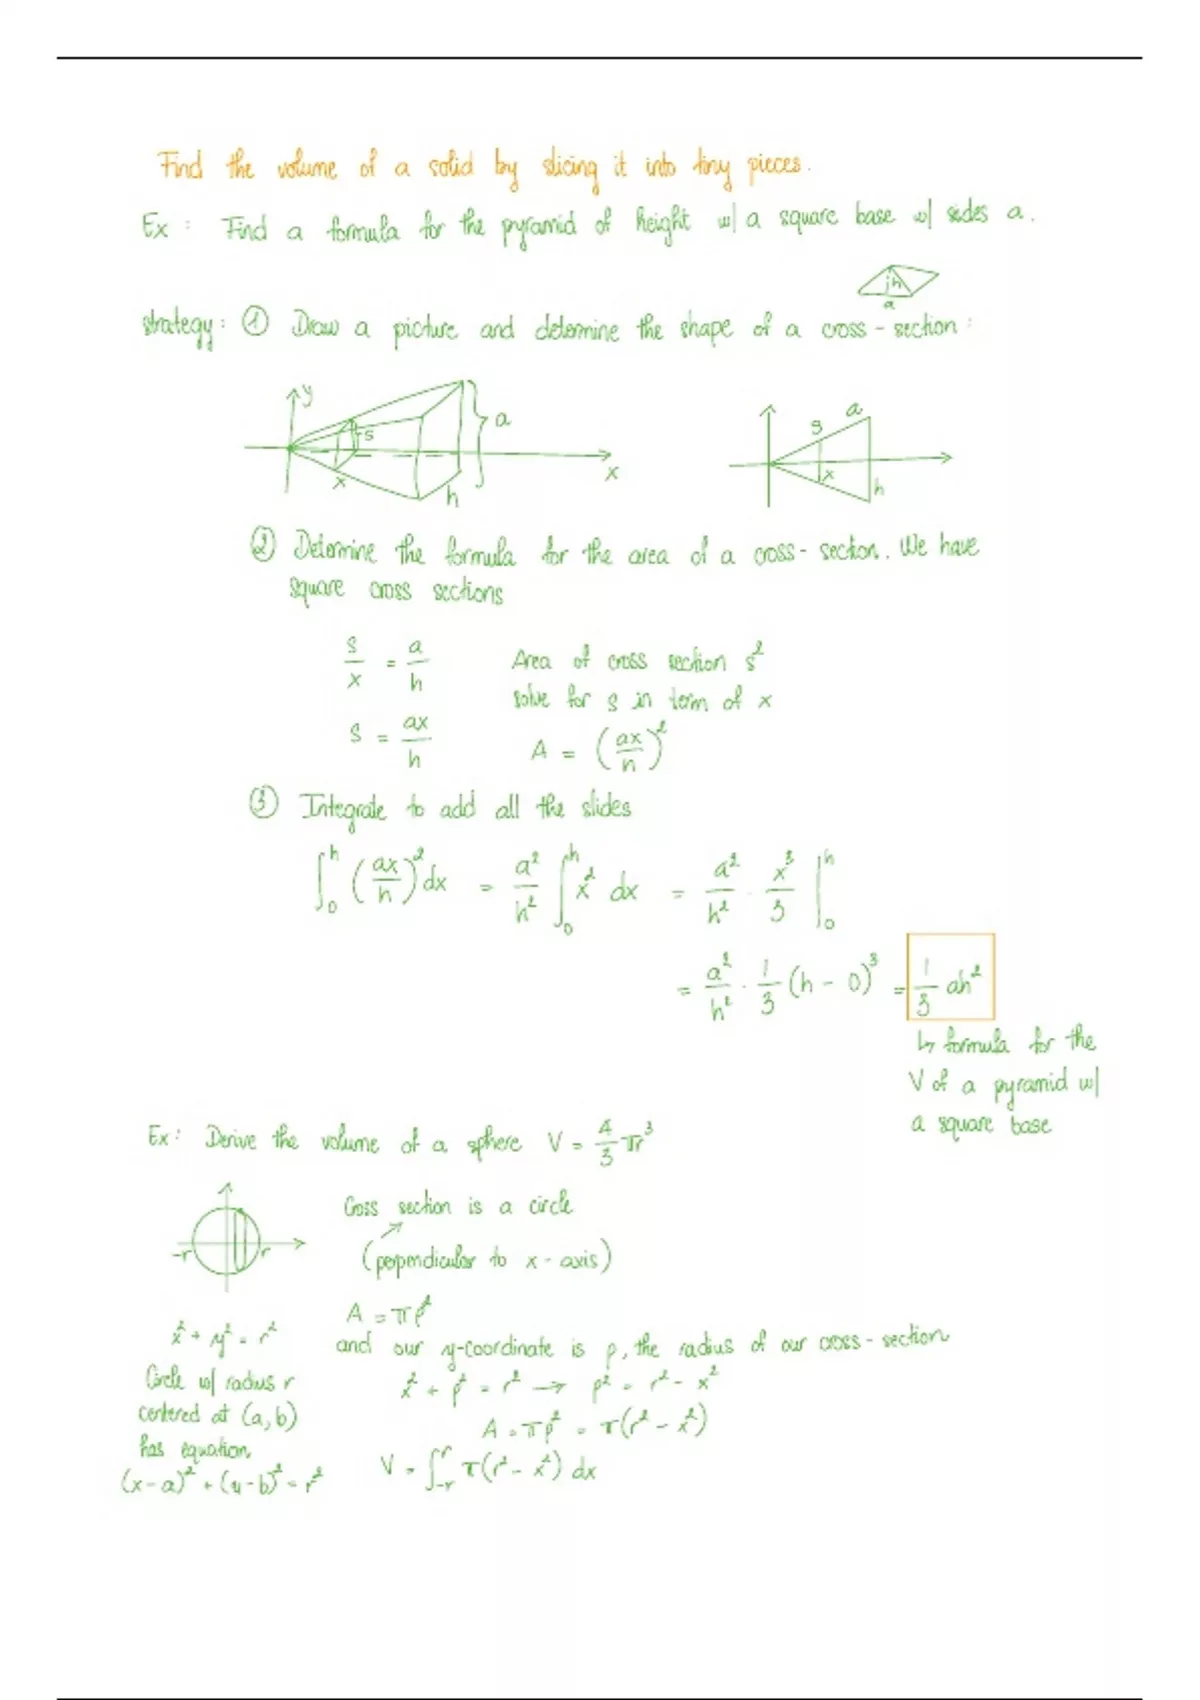 Find the volume of a solid by slicing it into tiny pieces.
Ex : Find a formula for the pyramid of height w/ a square base w/ sides a.
h
a
strategy: ① Draw a picture and determine the shape of a cross-section:
y
s
a
x
x
h
s
a
x
h
② Determine the formula for the area of a cross-section. We have
square cross sections
s/x = a/h
Area of cross section s²
solve for s in term of x
s = ax/h
A = (ax/h)²
③ Integrate to add all the slides
∫₀ʰ (ax/h)² dx = a²/h² ∫₀ʰ x² dx = a²/h² · x³/3 |₀ʰ
= a²/h² · 1/3 (h - 0)³ = 1/3 ah²
↳ formula for the
V of a pyramid w/
a square base
Ex: Derive the volume of a sphere V = 4/3 πr³
-r
r
Cross section is a circle
(perpendicular to x-axis)
A = πρ²
and our y-coordinate is ρ, the radius of our cross-section
x² + y² = r²
Circle w/ radius r
centered at (a,b)
has equation
(x-a)² + (y-b)² = r²
x² + ρ² = r² → ρ² = r² - x²
A = πρ² = π(r² - x²)
V = ∫₋ᵣʳ π(r² - x²) dx